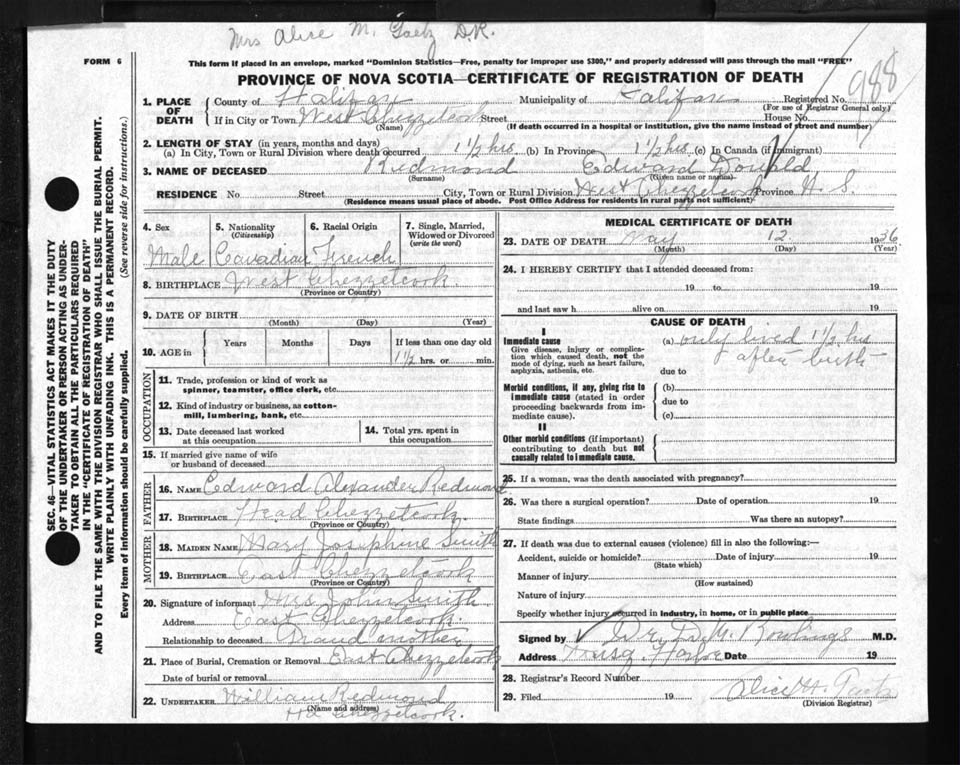 Mrs Alice M. Gaetz D.R.
FORM 6
This form if placed in an envelope, marked "Dominion Statistics—Free, penalty for improper use $300," and properly addressed will pass through the mail "FREE"
PROVINCE OF NOVA SCOTIA—CERTIFICATE OF REGISTRATION OF DEATH
988
1. PLACE OF DEATH
County of Halifax Municipality of Halifax Registered No.
(For use of Registrar General only.)
If in City or Town West Chezzetcook Street House No.
(Name) (If death occurred in a hospital or institution, give the name instead of street and number)
2. LENGTH OF STAY (in years, months and days)
(a) In City, Town or Rural Division where death occurred 1 1/2 hrs. (b) In Province 1 1/2 hrs (c) In Canada (if immigrant)
3. NAME OF DECEASED Redmond Edward Donald
(Surname) (Given name or names)
RESIDENCE No. Street City, Town or Rural Division West Chezzetcook Province N. S.
(Residence means usual place of abode. Post Office Address for residents in rural parts not sufficient)
4. Sex
Male
5. Nationality
(Citizenship)
Canadian
6. Racial Origin
French
7. Single, Married, Widowed or Divorced
(write the word)
8. BIRTHPLACE West Chezzetcook.
(Province or Country)
9. DATE OF BIRTH
(Month) (Day) (Year)
10. AGE in
Years Months Days If less than one day old
1 1/2 hrs. or min.
OCCUPATION
11. Trade, profession or kind of work as
spinner, teamster, office clerk, etc.
12. Kind of industry or business, as cotton-
mill, lumbering, bank, etc.
13. Date deceased last worked
at this occupation
14. Total yrs. spent in
this occupation
15. If married give name of wife
or husband of deceased
FATHER
16. NAME Edward Alexander Redmond.
17. BIRTHPLACE Head Chezzetcook.
(Province or Country)
MOTHER
18. MAIDEN NAME Mary Josephine Smith
19. BIRTHPLACE East Chezzetcook
(Province or Country)
20. Signature of informant Mrs John Smith
Address East Chezzetcook
Relationship to deceased Grand mother
21. Place of Burial, Cremation or Removal East Chezzetcook
Date of burial or removal
22. UNDERTAKER William Redmond
(Name and address)
Hd Chezzetcook.
MEDICAL CERTIFICATE OF DEATH
23. DATE OF DEATH May 12 1936
(Month) (Day) (Year)
24. I HEREBY CERTIFY that I attended deceased from:
19 to 19
and last saw h alive on 19
CAUSE OF DEATH
I
Immediate cause
Give disease, injury or complica-
tion which caused death, not the
mode of dying, such as heart failure,
asphyxia, asthenia, etc.
(a) only lived 1 1/2 hrs
after birth
due to
Morbid conditions, if any, giving rise to
immediate cause (stated in order
proceeding backwards from im-
mediate cause).
(b)
due to
(c)
II
Other morbid conditions (if important)
contributing to death but not
causally related to immediate cause.
25. If a woman, was the death associated with pregnancy?
26. Was there a surgical operation? Date of operation 19
State findings Was there an autopsy?
27. If death was due to external causes (violence) fill in also the following:—
Accident, suicide or homicide? Date of injury 19
(State which)
Manner of injury
(How sustained)
Nature of injury
Specify whether injury occurred in industry, in home, or in public place
Signed by Dr. D. M. Rowlings M.D.
Address Musq. Harbor Date 19
28. Registrar's Record Number
29. Filed 19 Alice M. Gaetz
(Division Registrar)
SEC. 46—VITAL STATISTICS ACT MAKES IT THE DUTY
OF THE UNDERTAKER OR PERSON ACTING AS UNDER-
TAKER TO OBTAIN ALL THE PARTICULARS REQUIRED
IN THE "CERTIFICATE OF REGISTRATION OF DEATH"
AND TO FILE THE SAME WITH THE DIVISION REGISTRAR WHO SHALL ISSUE THE BURIAL PERMIT.
WRITE PLAINLY WITH UNFADING INK. THIS IS A PERMANENT RECORD.
Every item of information should be carefully supplied. (See reverse side for instructions.)